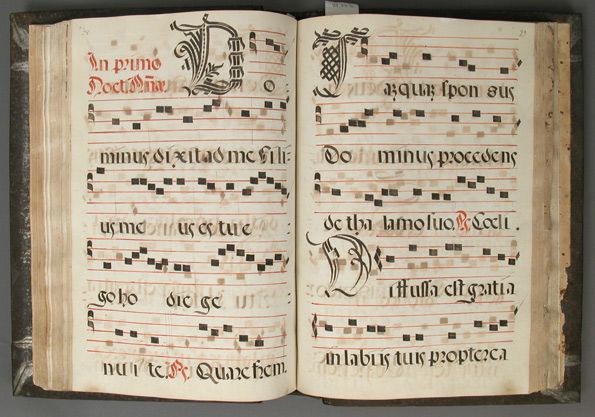 In primo
Noct. Añæ
Do
minus dixit ad me Fili
us me us es tu e
go ho die ge
nui te. Ps. Quare frem.
Tamquam spon sus
Do minus procedens
de tha lamo suo. Ps. Coeli.
Diffussa est gratia
in labiis tuis propterea